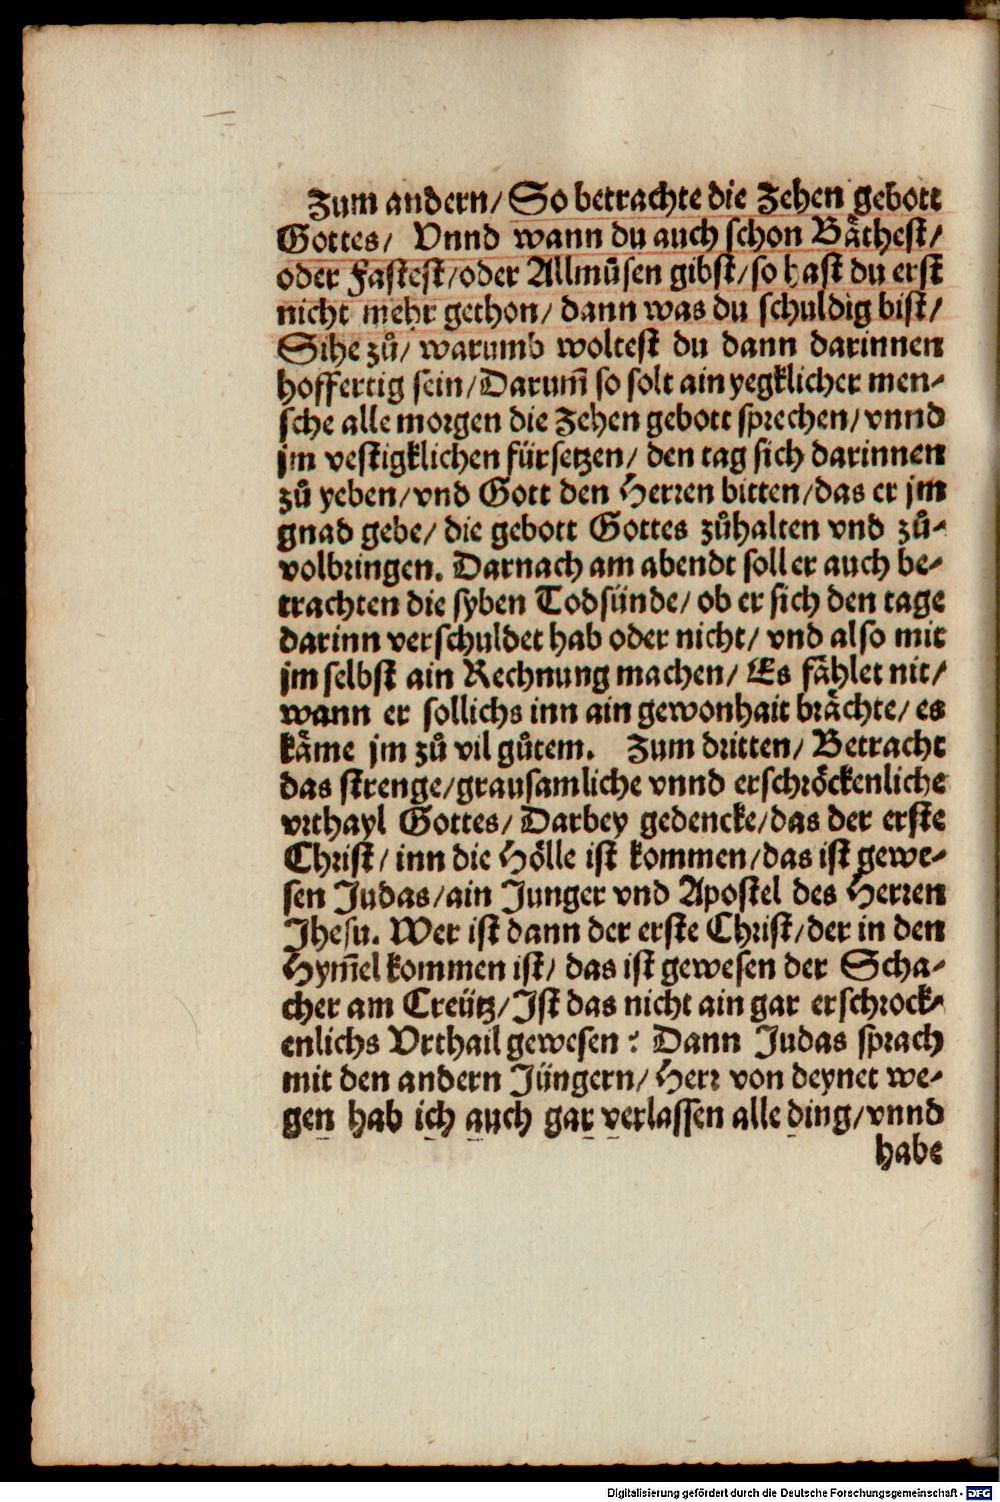 Zum andern/ So betrachte die Zehen gebott
Gottes/ Vnnd wann du auch schon Bäthest/
oder Fastest/oder Allmůsen gibst/so hast du erst
nicht mehr gethon/ dann was du schuldig bist/
Sihe zů/ warumb woltest du dann darinnen
hoffertig sein/Darum̃ so solt ain yegklicher men-
sche alle morgen die Zehen gebott sprechen/vnnd
jm vestigklichen fürsetzen/ den tag sich darinnen
zů yeben/vnd Gott den Herren bitten/das er jm
gnad gebe/ die gebott Gottes zůhalten vnd zů-
volbringen. Darnach am abendt soll er auch be-
trachten die syben Todsünde/ ob er sich den tage
darinn verschuldet hab oder nicht/ vnd also mit
jm selbst ain Rechnung machen/ Es fählet nit/
wann er sollichs inn ain gewonhait brächte/ es
käme jm zů vil gůtem. Zum dritten/ Betracht
das strenge/grausamliche vnnd erschröckenliche
vrthayl Gottes/ Darbey gedencke/das der erste
Christ/ inn die Hölle ist kommen/das ist gewe-
sen Judas/ain Junger vnd Apostel des Herren
Jhesu. Wer ist dann der erste Christ/der in den
Hym̃el kommen ist/ das ist gewesen der Scha-
cher am Creütz/Ist das nicht ain gar erschrock-
enlichs Vrthail gewesen? Dann Judas sprach
mit den andern Jüngern/ Herr von deynet we-
gen hab ich auch gar verlassen alle ding/vnnd
habe
Digitalisierung gefördert durch die Deutsche Forschungsgemeinschaft - DFG